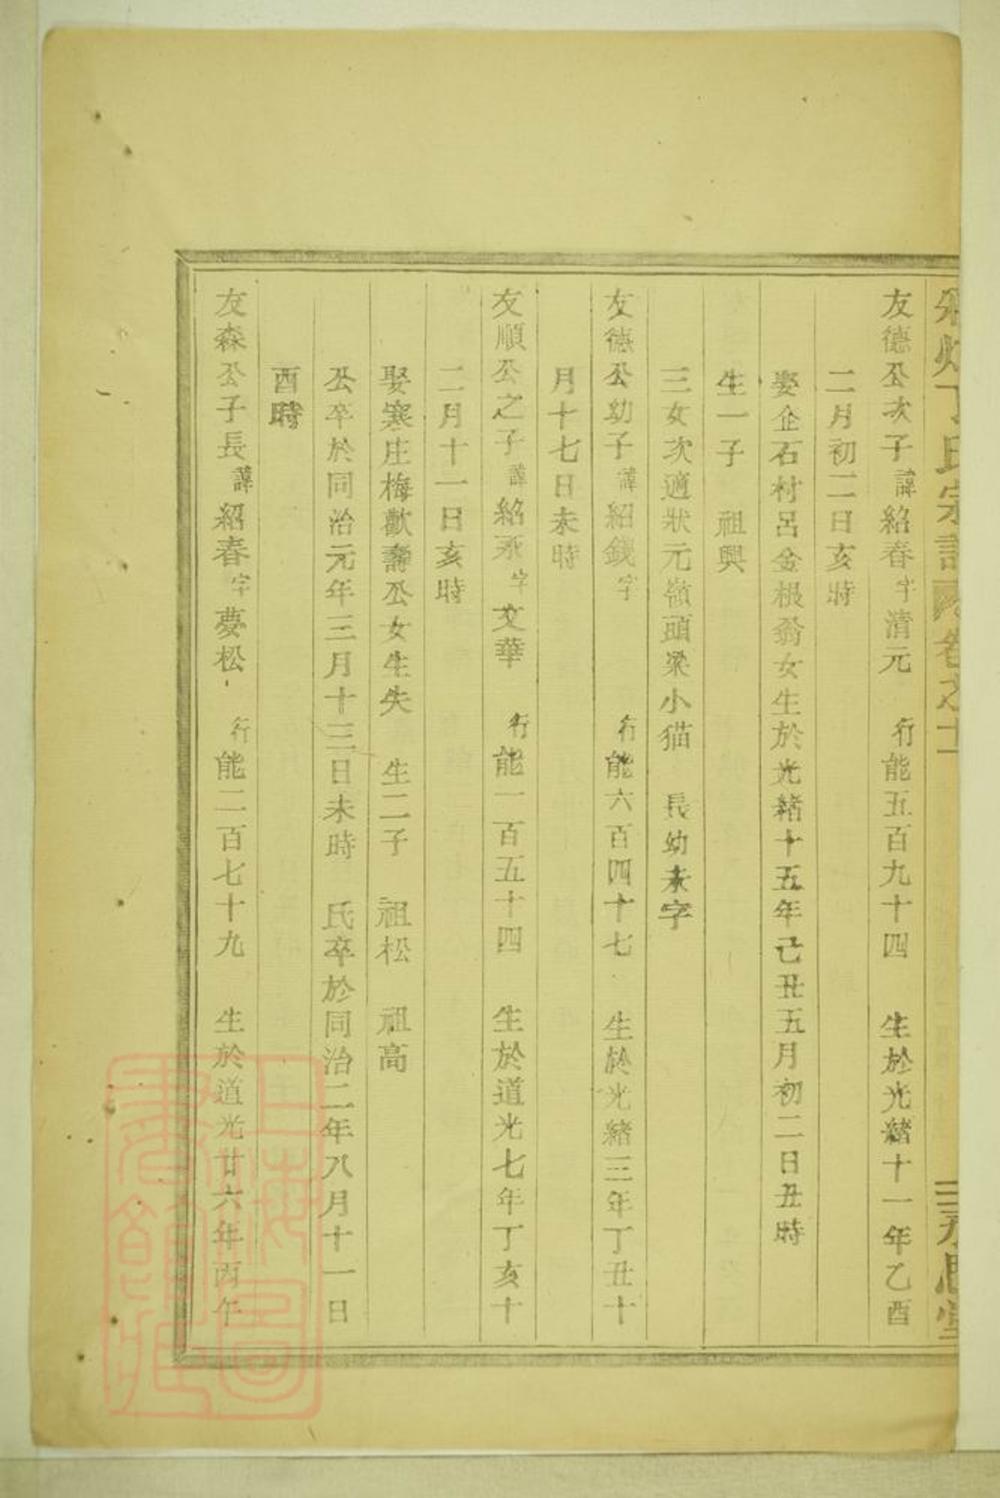 丁氏宗譜 卷之十一 三
友德公次子諱紹春字清元 行能五百九十四 生於光緒十一年乙酉
二月初二日亥時
娶企石村呂金根翁女生於光緒十五年己丑五月初二日丑時
生一子 祖興
三女次適狀元嶺頭梁小猫 長幼未字
友德公幼子諱紹錢字 行能六百四十七 生於光緒三年丁丑十
月十七日未時
友順公之子諱紹永字文華 行能一百五十四 生於道光七年丁亥十
二月十一日亥時
娶寒庄梅歡壽公女生失 生二子 祖松 祖高
公卒於同治元年三月十三日未時 氏卒於同治二年八月十一日
酉時
友森公子長諱紹春字夢松 行能二百七十九 生於道光廿六年丙午
上海圖書館藏